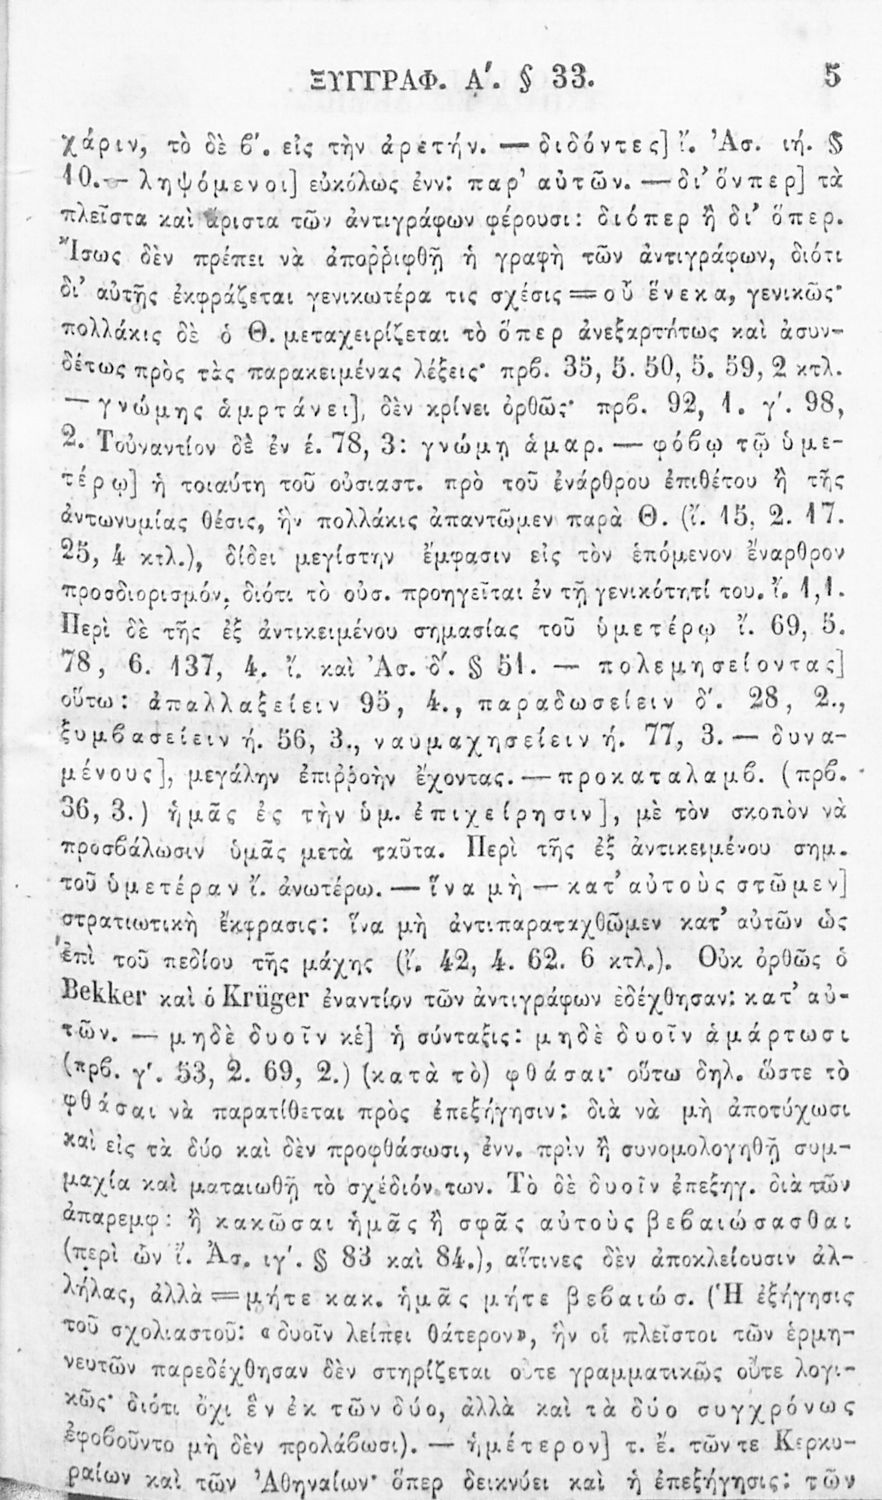 ΞΥΓΓΡΑΦ. Α΄. § 33. 5
χάριν, τὸ δὲ ϐ΄. εἰς τὴν ἀρετήν. — διδόντες] ἴ. Ἀσ. ιή. §
10.— ληψόμενοι] εὐκόλως ἐνν: παρ' αὐτῶν. — δι' ὅνπερ] τὰ
πλεῖστα καὶ ἄριστα τῶν ἀντιγράφων φέρουσι: διόπερ ἢ δι' ὅπερ.
Ἴσως δὲν πρέπει νὰ ἀποῤῥιφθῇ ἡ γραφὴ τῶν ἀντιγράφων, διότι
δι' αὐτῆς ἐκφράζεται γενικωτέρα τις σχέσις = οὗ ἕνεκα, γενικῶς·
πολλάκις δὲ ὁ Θ. μεταχειρίζεται τὸ ὅπερ ἀνεξαρτήτως καὶ ἀσυν-
δέτως πρὸς τὰς παρακειμένας λέξεις· πρϐ. 35, 5. 50, 5. 59, 2 κτλ.
— γνώμης ἁμρτάνει], δὲν κρίνει ὀρθῶς· πρϐ. 92, 1. γ΄. 98,
2. Τοὐναντίον δὲ ἐν έ. 78, 3: γνώμῃ ἁμαρ. — φόϐῳ τῷ ὑμε-
τέρῳ] ἡ τοιαύτη τοῦ οὐσιαστ. πρὸ τοῦ ἐνάρθρου ἐπιθέτου ἢ τῆς
ἀντωνυμίας θέσις, ἣν πολλάκις ἀπαντῶμεν παρὰ Θ. (ἴ. 15, 2. 17.
25, 4 κτλ.), δίδει μεγίστην ἔμφασιν εἰς τὸν ἑπόμενον ἔναρθρον
προσδιορισμόν, διότι τὸ οὐσ. προηγεῖται ἐν τῇ γενικότητί του. ἴ. 1,1.
Περὶ δὲ τῆς ἐξ ἀντικειμένου σημασίας τοῦ ὑμετέρῳ ἴ. 69, 5.
78, 6. 137, 4. ἴ. καὶ Ἀσ. δ΄. § 51. — πολεμησείοντας]
οὕτω: ἀπαλλαξείειν 95, 4., παραδωσείειν δ΄. 28, 2.,
ξυμϐασείειν ή. 56, 3., ναυμαχησείειν ή. 77, 3. — δυνα-
μένους], μεγάλην ἐπιῤῥοὴν ἔχοντας. — προκαταλαμϐ. (πρϐ.
36, 3.) ἡμᾶς ἐς τὴν ὑμ. ἐπιχείρησιν], μὲ τὸν σκοπὸν νὰ
προσϐάλωσιν ὑμᾶς μετὰ ταῦτα. Περὶ τῆς ἐξ ἀντικειμένου σημ.
τοῦ ὑμετέραν ἴ. ἀνωτέρω. — ἵνα μὴ — κατ' αὐτοὺς στῶμεν]
στρατιωτικὴ ἔκφρασις: ἵνα μὴ ἀντιπαραταχθῶμεν κατ' αὐτῶν ὡς
ἐπὶ τοῦ πεδίου τῆς μάχης (ἴ. 42, 4. 62. 6 κτλ.). Οὐκ ὀρθῶς ὁ
Bekker καὶ ὁ Krüger ἐναντίον τῶν ἀντιγράφων ἐδέχθησαν: κατ' αὐ-
τῶν. — μηδὲ δυοῖν κἑ] ἡ σύνταξις: μηδὲ δυοῖν ἁμάρτωσι
(πρϐ. γ΄. 53, 2. 69, 2.) (κατὰ τὸ) φθάσαι· οὕτω δηλ. ὥστε τὸ
φθάσαι νὰ παρατίθεται πρὸς ἐπεξήγησιν: διὰ νὰ μὴ ἀποτύχωσι
καὶ εἰς τὰ δύο καὶ δὲν προφθάσωσι, ἐνν. πρὶν ἢ συνομολογηθῇ συμ-
μαχία καὶ ματαιωθῇ τὸ σχέδιόν των. Τὸ δὲ δυοῖν ἐπεξηγ. διὰ τῶν
ἀπαρεμφ: ἢ κακῶσαι ἡμᾶς ἢ σφᾶς αὐτοὺς βεϐαιώσασθαι
(περὶ ὧν ἴ. Ἀσ. ιγ΄. § 83 καὶ 84.), αἵτινες δὲν ἀποκλείουσιν ἀλ-
λήλας, ἀλλὰ = μήτε κακ. ἡμᾶς μήτε βεϐαιώσ. (Ἡ ἐξήγησις
τοῦ σχολιαστοῦ: «δυοῖν λείπει θάτερον», ἣν οἱ πλεῖστοι τῶν ἑρμη-
νευτῶν παρεδέχθησαν δὲν στηρίζεται οὔτε γραμματικῶς οὔτε λογι-
κῶς· διότι ὄχι ἓν ἐκ τῶν δύο, ἀλλὰ καὶ τὰ δύο συγχρόνως
ἐφοϐοῦντο μὴ δὲν προλάϐωσι). — ἡμέτερον] τ. ἔ. τῶν τε Κερκυ-
ραίων καὶ τῶν Ἀθηναίων· ὅπερ δεικνύει καὶ ἡ ἐπεξήγησις: τῶν